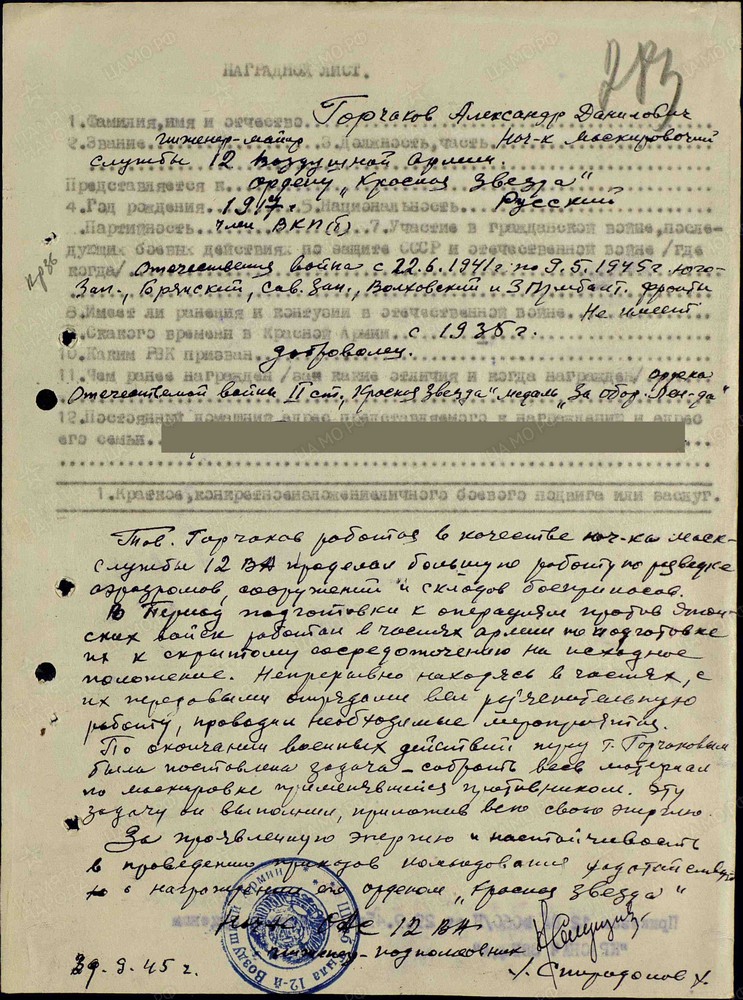 283
НАГРАДНОЙ ЛИСТ.
1.Фамилия,имя и отчество... Горчаков Александр Данилович
2.Звание инженер-майор 3.Должность,часть. Нач-к маскировочной
службы 12 воздушной армии.
Представляется к.. ордену „Красная Звезда"
4.Год рождения.. 1917 г. 5.Национальность... Русский
Партийность.. член ВКП(б) 7.Участие в гражданской войне,после-
дующих боевых действиях по защите СССР и отечественной войне /где
когда/ Отечественная война с 22.6.1941г. по 9.5.1945г. юго-
Зап., Брянский, Сев. Зап., Волховский и 3 Прибалт. фронты
8.Имеет ли ранения и контузии в отечественной войне.. Не имеет
9.Скакого времени в Красной Армии.. с 1935 г.
10.Каким РВК призван.. доброволец.
11.Чем ранее награжден /за какие отличия и когда награжден/ ордена
Отечественной войны II ст., Красная Звезда" медаль „За обор. Лен-да"
12.Постоянный домашний адрес представляемого к награждению и адрес
его семьи...
1.Краткое,конкретноеизложениеличного боевого подвига или заслуг.
Тов. Горчаков работая в качестве нач-ка маск-
службы 12 ВА проделал большую работу по разведке
аэродромов, сооружений и складов боеприпасов.
В период подготовки к операциям против япон-
ских войск работал в частях армии по подготовке
их к скрытому сосредоточению на исходное
положение. Непрерывно находясь в частях, с
их передовыми отрядами вел раз'яснительную
работу, проводил необходимые мероприятия.
По окончании военных действий перед т. Горчаковым
была поставлена задача – собрать весь материал
по маскировке применявшейся противником. Эту
задачу он выполнил, приложив всю свою энергию.
За проявленную энергию и настойчивость
в проведении приказов командования
награждения его орденом „Красная Звезда"
12 ВА
инженер-подполковник
/. Спиридонов /.
29.9.45 г.
Штаба 12-й Воздушной Армии